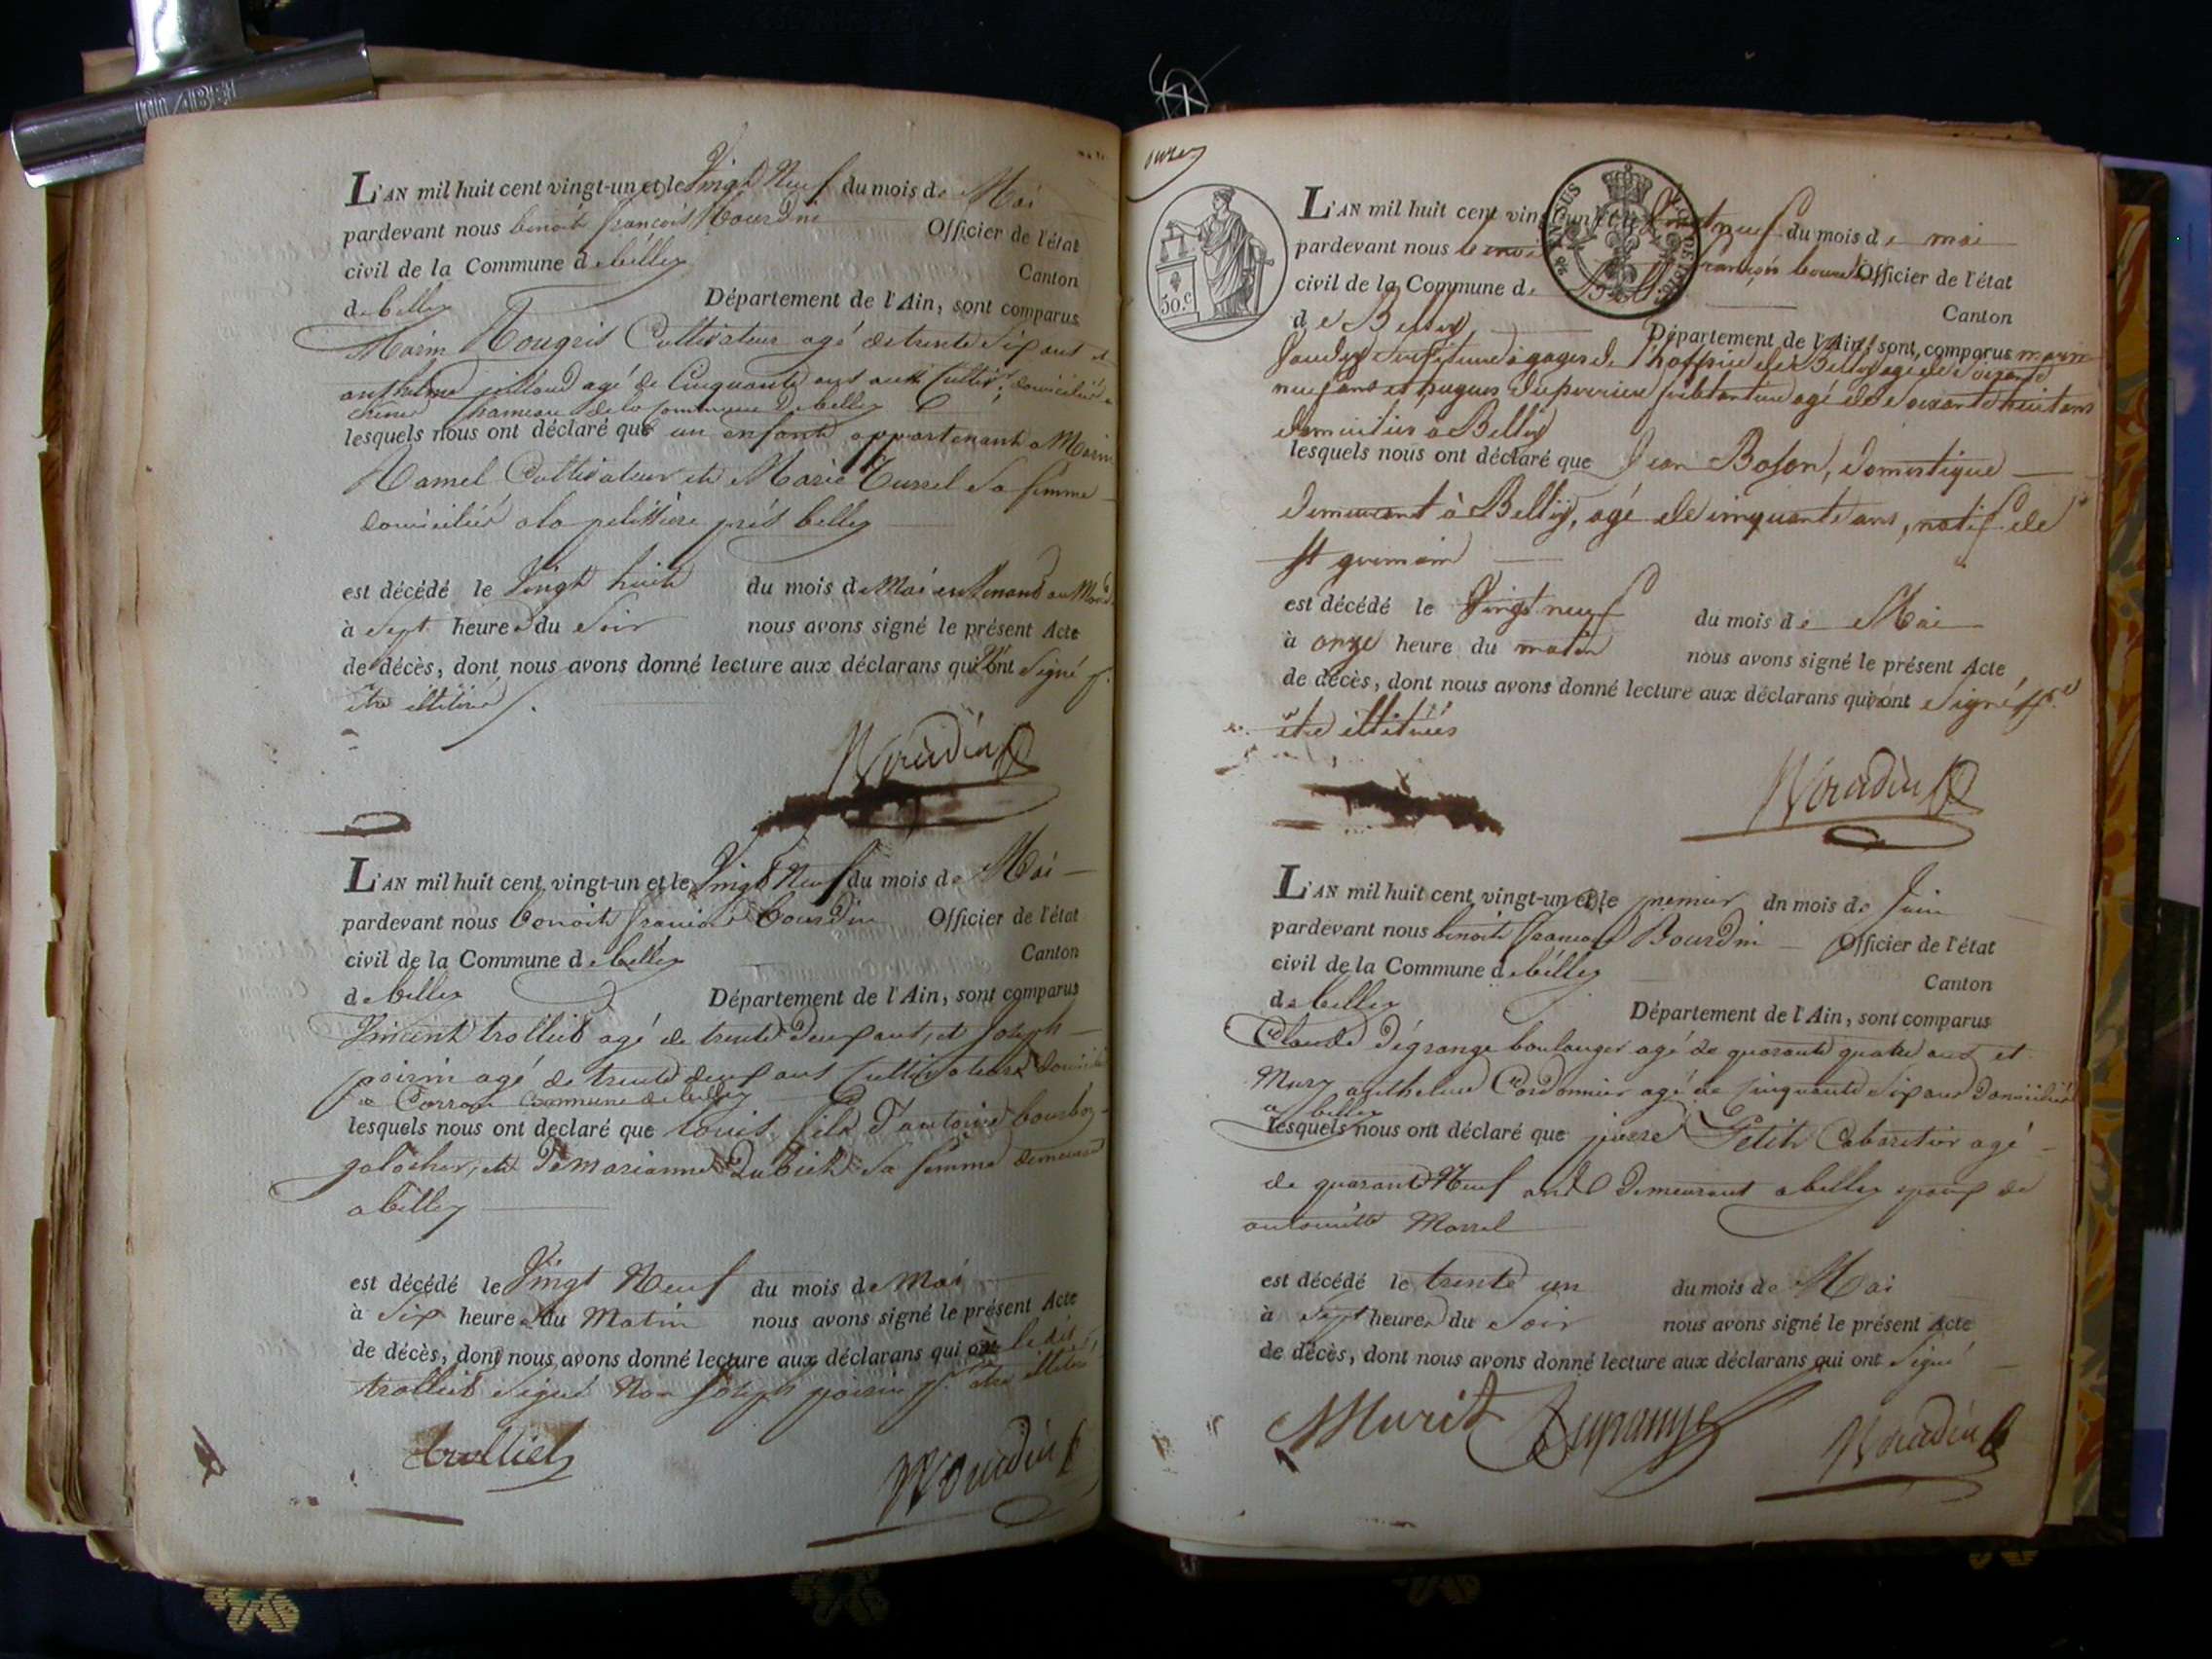 L'AN mil huit cent vingt-un et le Vingt Neuf du mois de Mai
pardevant nous benoit françois Bourdin Officier de l'état
civil de la Commune de belley Canton
de belley Département de l'Ain, sont comparus
Marin Cultivateur agé de trente Six ans et
anthelme agé de Cinquante ans aussi Cultivr domiciliés a
hameau de la Commune de belley
lesquels nous ont déclaré que un enfant appartenant a Marin
Hamel Cultivateur et Marie Sa femme
domiciliés a la pelissière près belley
est décédé le Vingt huit du mois de Mai en Venant au Monde
à Sept heures du Soir nous avons signé le présent Acte
de décès, dont nous avons donné lecture aux déclarans qui n'ont Signé pr
être illitérés
Bourdin
L'AN mil huit cent vingt-un et le Vingt Neuf du mois de Mai
pardevant nous benoit françois bourdin Officier de l'état
civil de la Commune de belley Canton
de belley Département de l'Ain, sont comparus
Vincent trolliet agé de trente deux ans, et Joseph
poirin agé de trente deux ans Cultivateurs domiciliés
a Commune de belley
lesquels nous ont declaré que Louis fils d'antoine
galocher, et de marianne Dubich Sa femme demeurant
a belley
est décédé le Vingt Neuf du mois de Mai
à Six heures du Matin nous avons signé le présent Acte
de décès, dont nous avons donné lecture aux déclarans qui ont le dit
trolliet Signé Non Joseph poirin pr être illitéré
trolliet Bourdin
onze
50.c
L'AN mil huit cent vingt-un et le Vingt neuf du mois de mai
pardevant nous benoit françois bourdin Officier de l'état
civil de la Commune de Belley Canton
de Belley Département de l'Ain, sont comparus marin
à gages de l'hospice de Belley agé de soixante
neuf ans et agé de soixante huit ans
domiciliés a Belley
lesquels nous ont déclaré que Jean Boson, domestique
demeurant à Belley, agé de cinquante ans, natif de
St germain
est décédé le Vingt neuf du mois de Mai
à onze heure du matin nous avons signé le présent Acte
de décès, dont nous avons donné lecture aux déclarans qui n'ont Signé pr
être illitérés
Bourdin
L'AN mil huit cent vingt-un et le premier dn mois de Juin
pardevant nous benoit françois Bourdin Officier de l'état
civil de la Commune de belley Canton
de belley Département de l'Ain, sont comparus
Claude Dégrange boulanger agé de quarante quatre ans et
anthelme Cordonnier agé de Cinquante Six ans domiciliés
a belley
lesquels nous ont déclaré que pierre Petit Cabaretier agé
de quarante Neuf ans demeurant a belley epoux de
antoinette Morrel
est décédé le trente un du mois de Mai
à Sept heures du Soir nous avons signé le présent Acte
de décès, dont nous avons donné lecture aux déclarans qui ont Signé
Bourdin